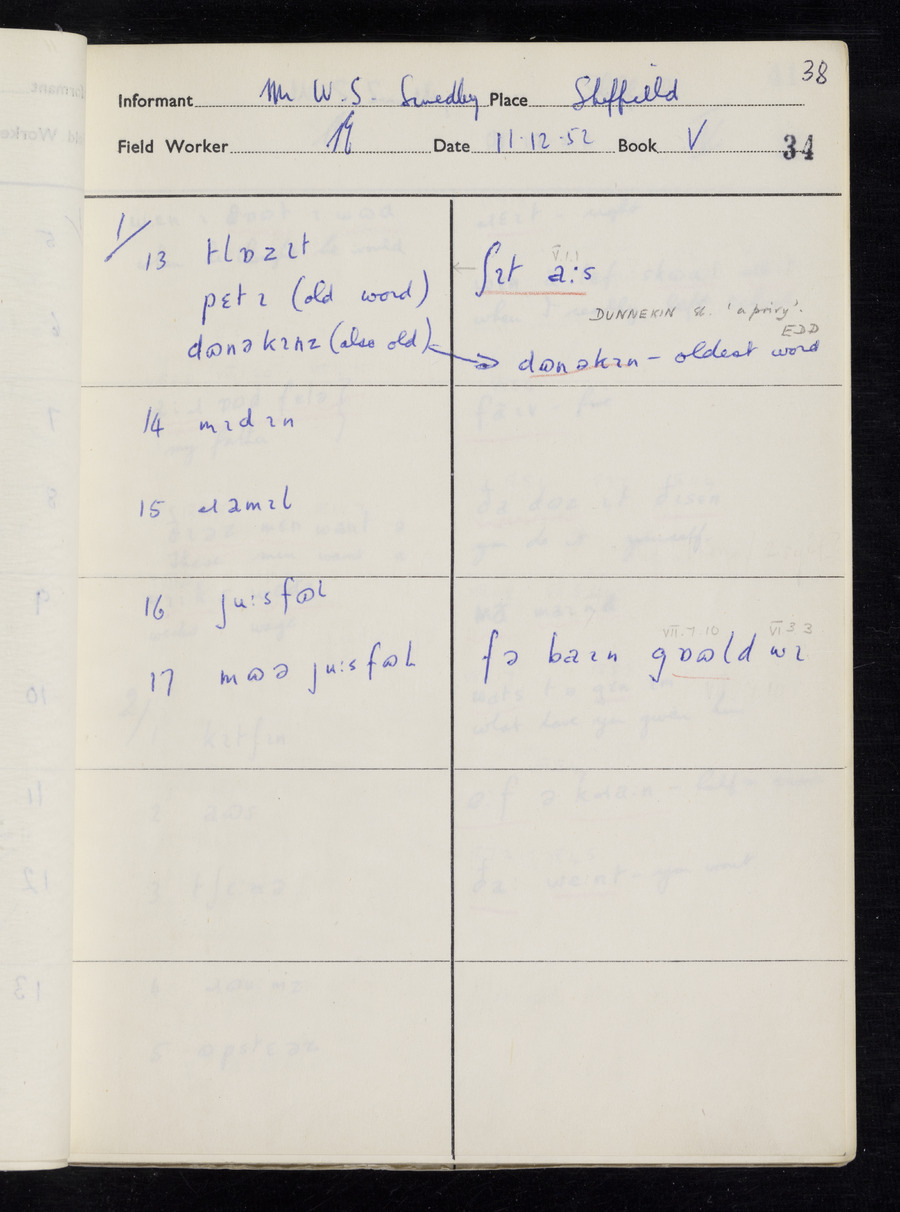 38
Informant Mr W.S. Smedley Place Sheffield
Field Worker Date 11.12.52 Book V 34
1/
13 tlɒzɪt
pɛtɪ (old word)
dɷnəkɪnz (also old)
V.1.1
← ʃɪt a:s
DUNNEKIN sb. 'a privy'.
EDD
→ dɷnəkɪn – oldest word
14 mɪdɪn
15 ɹamɪl
16 ju:sfɷl
17 mɷə ju:sfɷl
VII.7.10 VI.3.3
fə baɪn gɒɷld wɪ